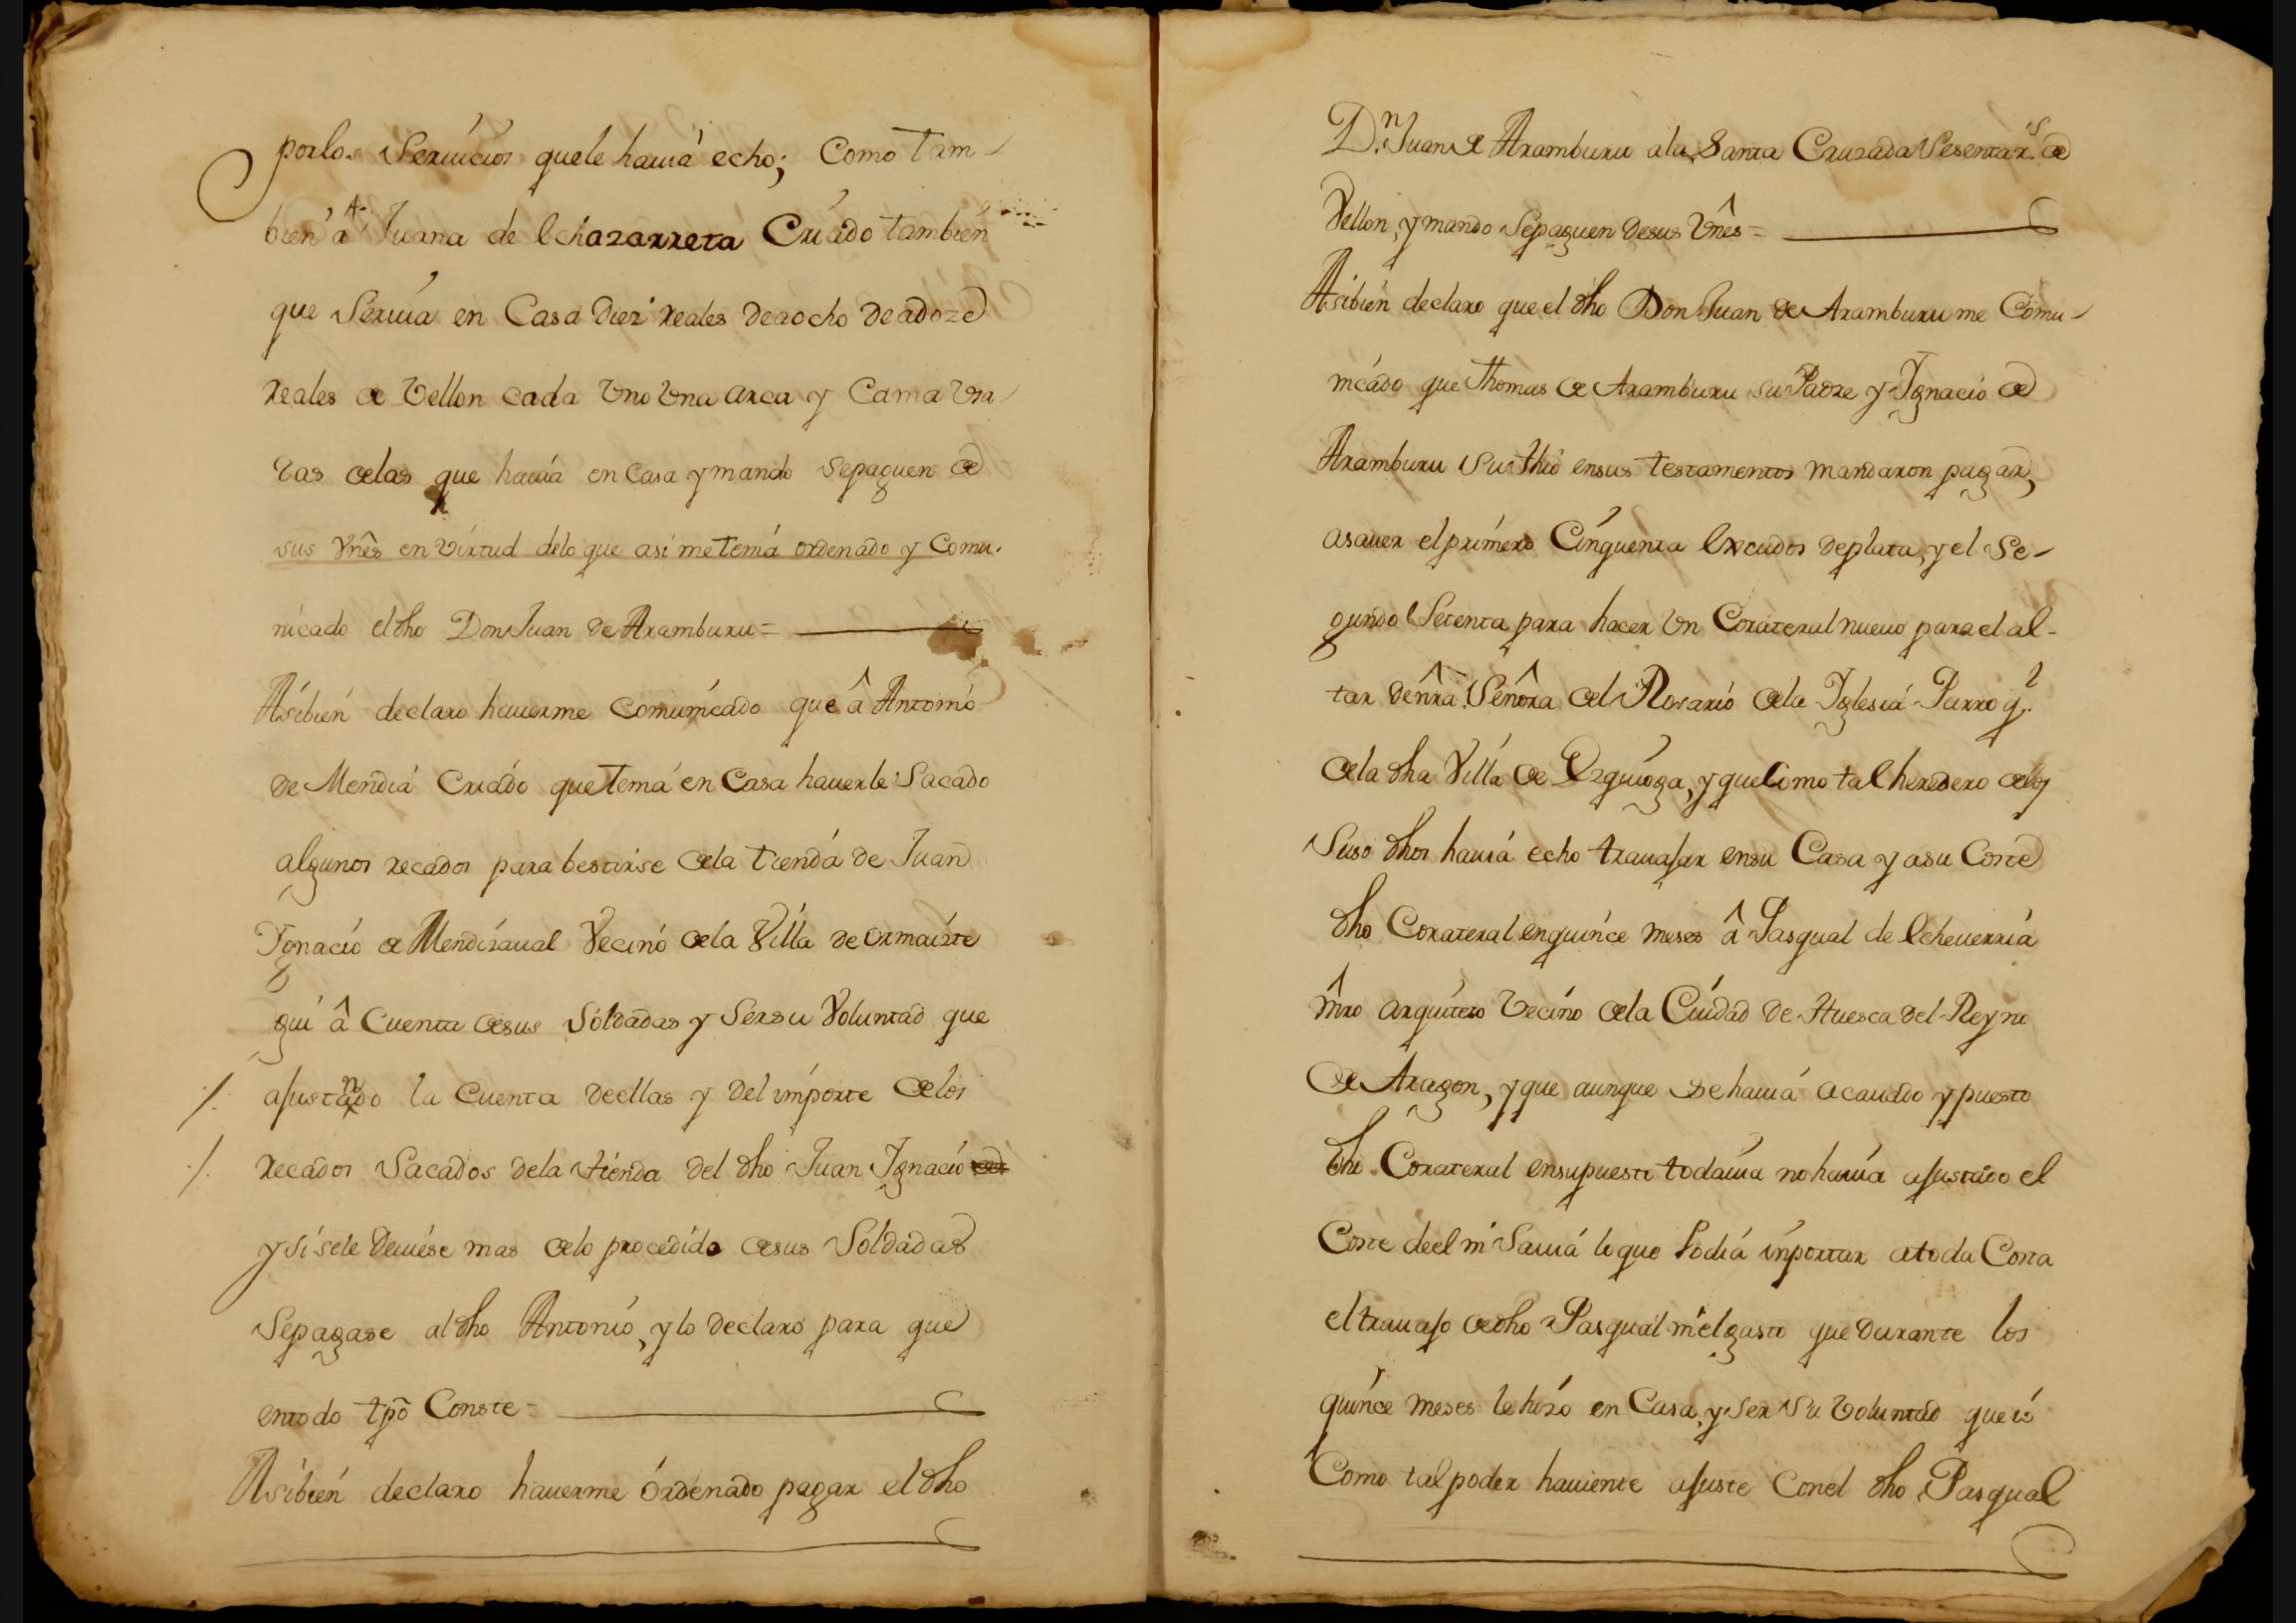 por los Seruicios que le hauia echo; Como Tam-
bien a Juana de Echazarreta Criado tambien
que Seruia en Casa Diez reales de a ocho de a doze
reales de Vellon cada Vno Vna arca y Cama Vra-
das de las que hauia en Casa y mando Se paguen de
sus Vnês en virtud de lo que asi me Tenia ordenado y Comu-
nicado el dho Don Juan de Aramburu =
Asibien declaro hauerme Comunicado que â Antonio
de Mendia Criado que Tenia en Casa hauerle Sacado
algunos recados para bestirse de la tienda de Juan
Ygnacio de Mendizaual Vecino de la Villa de ormaizte
gui â Cuenta de sus Soldadas y Ser su Voluntad que
ajustando la Cuenta de ellas y del importe de los
recados Sacados de la tienda del dho Juan Ignacio
y si se le deuiese mas de lo procedido de sus Soldadas
Se pagase al dho Antonio, y lo declaro para que
en todo tpô Conste =
Asibien declaro hauerme ordenado pagar el dho
Dn. Juan de Aramburu a la Santa Cruzada Sesenta rs. de
Vellon, y mando Se paguen de sus Vnês =
Asibien declaro que el dho Don Juan de Aramburu me Comu-
nicado que Thomas de Aramburu su Padre y Ygnacio de
Aramburu Su thio en sus testamentos mandaron pagar,
a sauer el primero Cinquenta Escudos de plata, y el Se-
gundo Setenta para hacer Vn Corateral nueuo para el al-
tar de nrâ. Señora del Rosario de la Yglesia Parroql.
de la dha Villa de Ezquioga, y que Como tal heredero de los
Suso dhos hauia echo trauajar en su Casa y a su Coste
dho Corateral en quince meses â Pasqual de Echeuerria
mrô arquiteto Vecino de la Ciudad de Huesca del Reyno
de Aragon, y que aunque Se hauia acauado y puesto
dho Corateral en su puesto todauia no hauia ajustado el
Coste de el ni Sauia lo que Podia inportar a toda Costa
el trauajo de dho Pasqual ni el gasto que Durante los
quince meses le hizo en Casa, y Ser Su Voluntad que io
Como tal poder hauiente ajuste Con el dho Pasqual